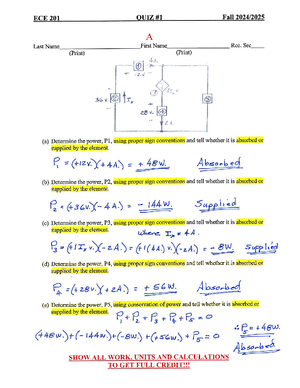 ECE 201 QUIZ #1 Fall 2024/2025
A
Last Name First Name Rec. Sec
(Print) (Print)
4A
+ 12v. -
36v. Ix
28v.
2A
(a) Determine the power, P1, using proper sign conventions and tell whether it is absorbed or
supplied by the element.
P1 = (+12v.)(+4A.) = +48W. Absorbed
(b) Determine the power, P2, using proper sign conventions and tell whether it is absorbed or
supplied by the element.
P2 = (+36v.)(-4A.) = -144W. Supplied
(c) Determine the power, P3, using proper sign conventions and tell whether it is absorbed or
supplied by the element. where Ix = 4A.
P3 = (1Ix v.)(-2A.) = (1(4A) v.)(-2A.) = -8W. Supplied
(d) Determine the power, P4, using proper sign conventions and tell whether it is absorbed or
supplied by the element.
P4 = (+28v.)(+2A.) = +56W. Absorbed
(e) Determine the power, P5, using conservation of power and tell whether it is absorbed or
supplied by the element. P1 + P2 + P3 + P4 + P5 = 0
(+48w.)+(-144w.)+(-8w.)+(+56w.)+P5 = 0 ∴ P5 = +48W.
Absorbed
SHOW ALL WORK, UNITS AND CALCULATIONS
TO GET FULL CREDIT!!!